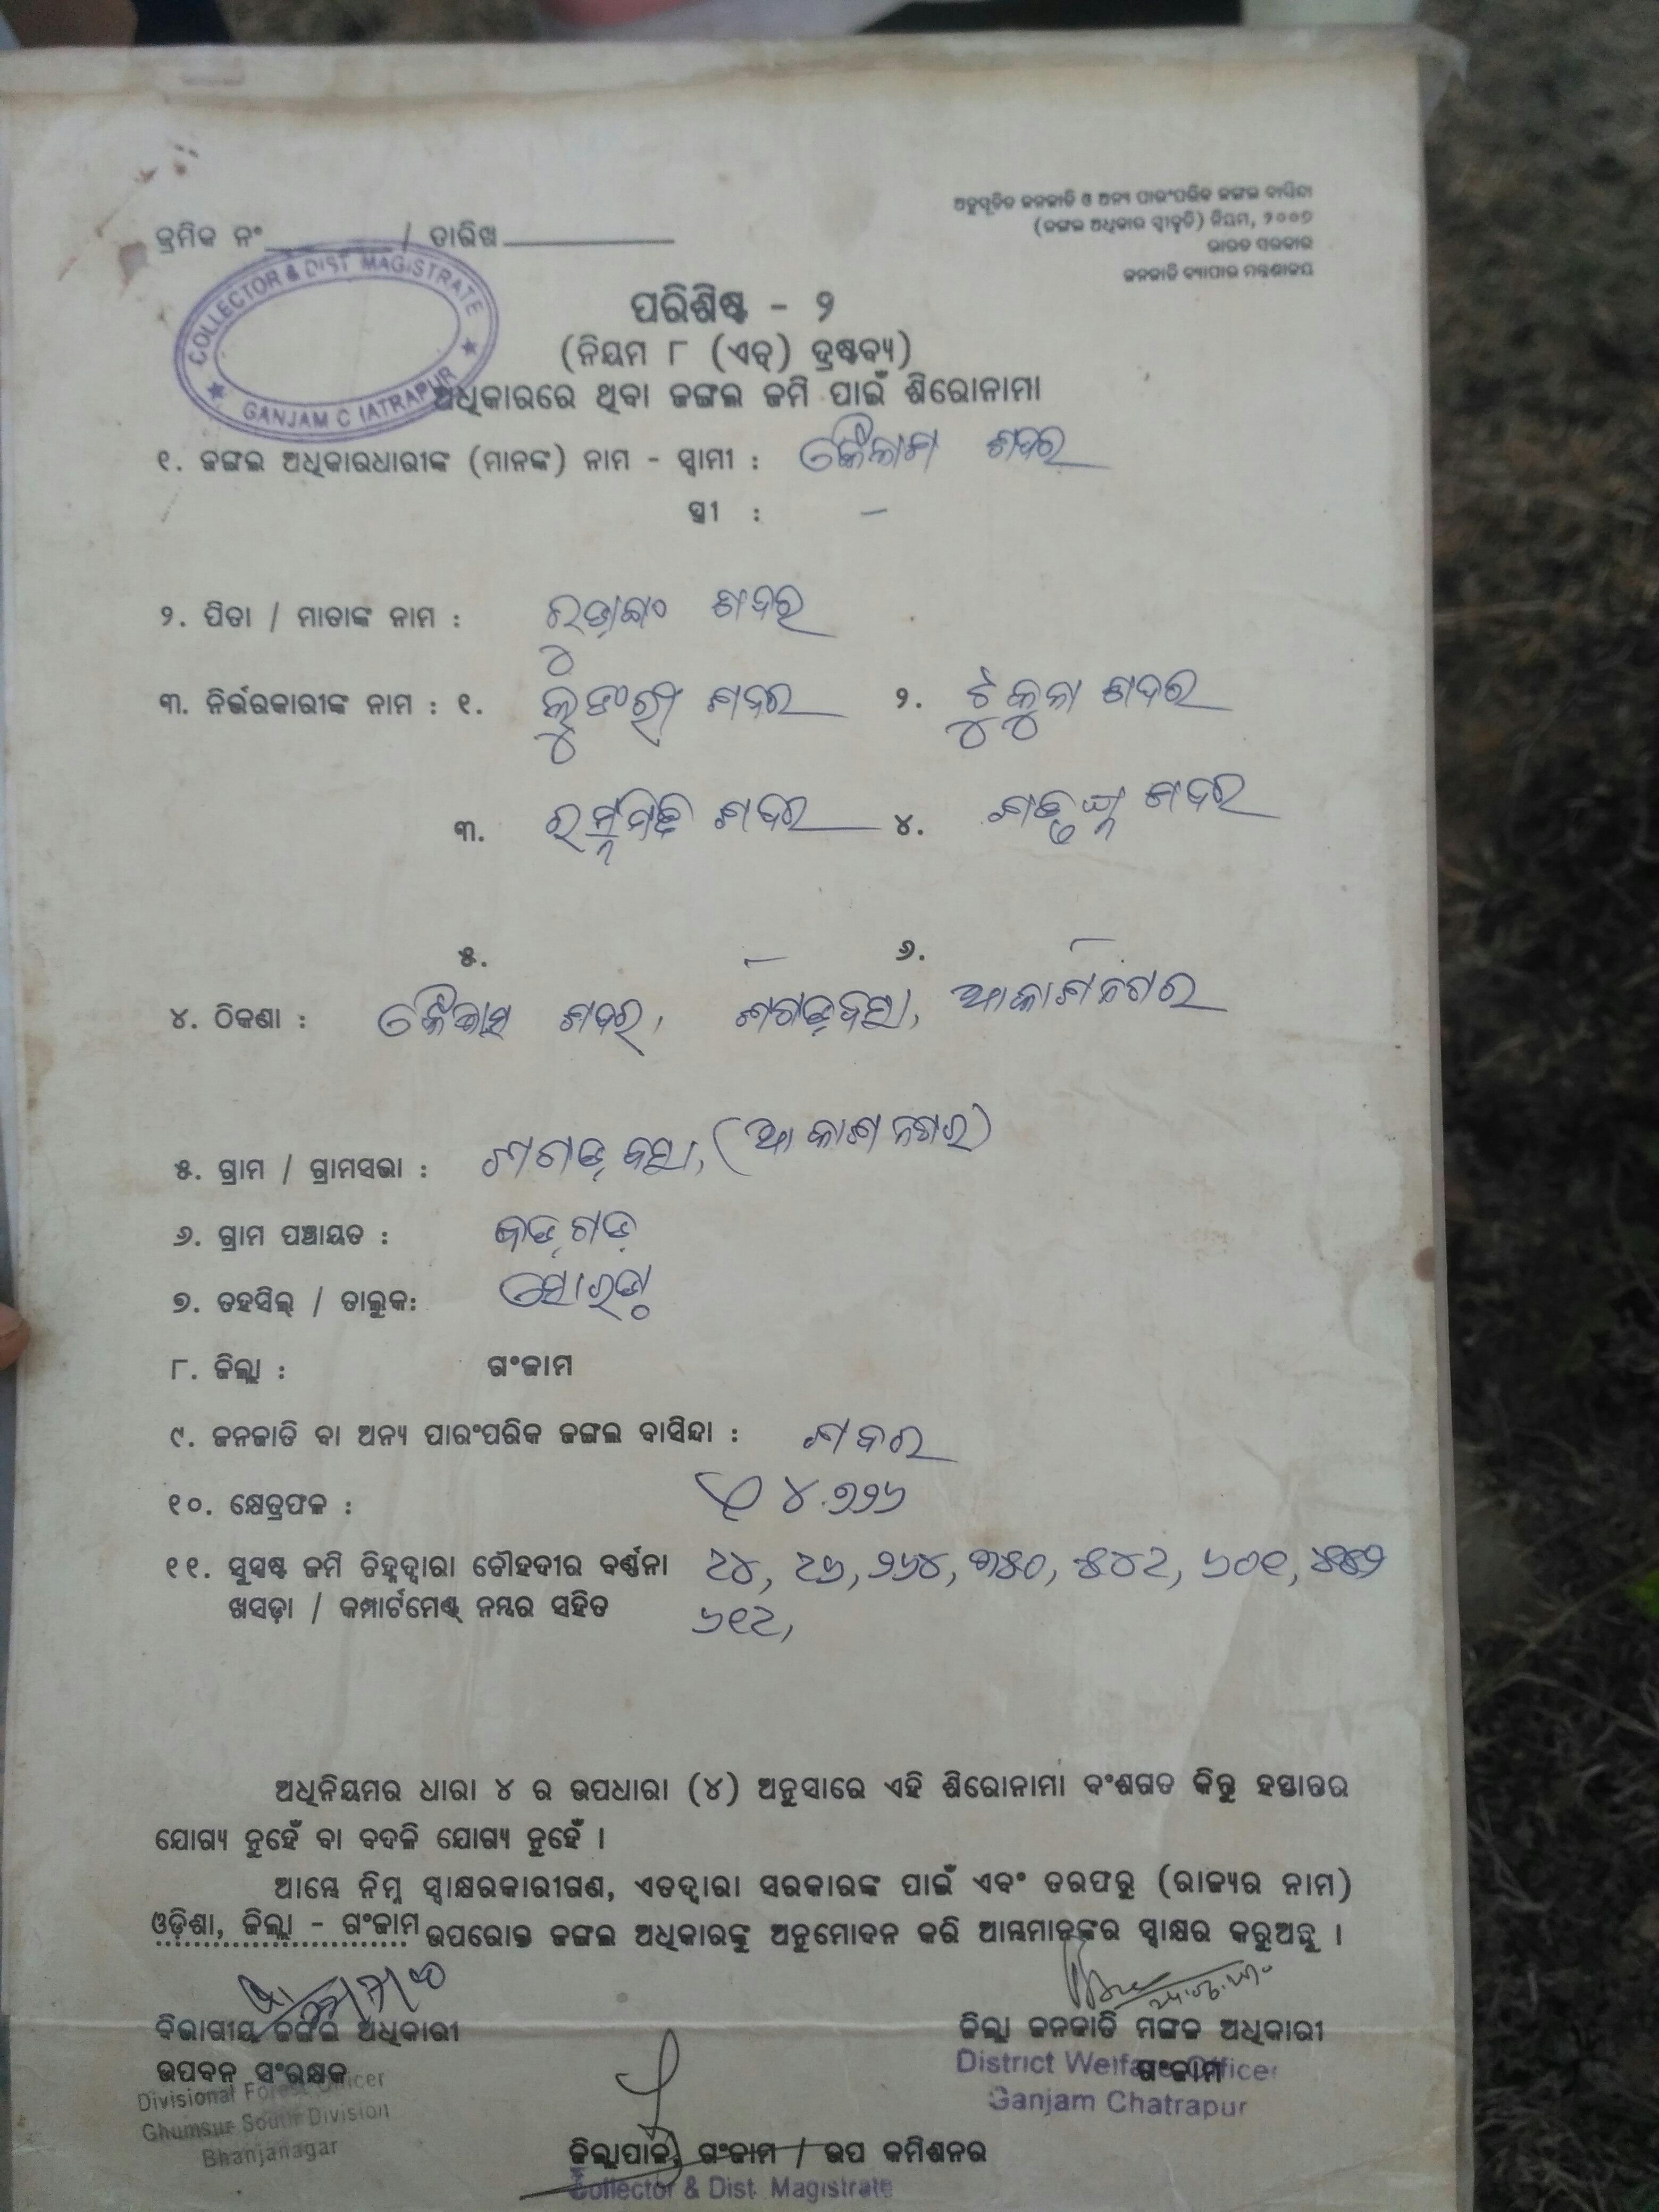 ଅନୁସୂଚିତ ଜନଜାତି ଓ ଅନ୍ୟ ପାରଂପରିକ ଜଙ୍ଗଲ ବାସିନ୍ଦା
(ଜଙ୍ଗଲ ଅଧିକାର ସ୍ୱୀକୃତି) ନିୟମ, ୨୦୦୭
ଭାରତ ସରକାର
ଜନଜାତି ବ୍ୟାପାର ମନ୍ତ୍ରଣାଳୟ
କ୍ରମିକ ନଂ / ତାରିଖ
COLLECTOR & DIST MAGISTRATE
GANJAM C IATRAPUR
ପରିଶିଷ୍ଟ - ୨
(ନିୟମ ୮ (ଏଚ୍) ଦ୍ରଷ୍ଟବ୍ୟ)
ଅଧିକାରରେ ଥିବା ଜଙ୍ଗଲ ଜମି ପାଇଁ ଶିରୋନାମା
୧. ଜଙ୍ଗଲ ଅଧିକାରଧାରୀଙ୍କ (ମାନଙ୍କ) ନାମ - ସ୍ୱାମୀ : କୈଳାଶ ଶବର
ସ୍ତ୍ରୀ : –
୨. ପିତା / ମାତାଙ୍କ ନାମ : ଶବର
୩. ନିର୍ଭରକାରୀଙ୍କ ନାମ : ୧. ଶବର ୨. ଟୁକୁନା ଶବର
୩. ଶବର ୪. ଶତ୍ରୁଘ୍ନ ଶବର
୫. – ୬. –
୪. ଠିକଣା : ଶବର, ଶଗଡ଼ବସା, ଆକାଶନଗର
୫. ଗ୍ରାମ / ଗ୍ରାମସଭା : ଶଗଡ଼ବସା, (ଆକାଶନଗର)
୬. ଗ୍ରାମ ପଞ୍ଚାୟତ : ବଡ଼ଗଡ଼
୭. ତହସିଲ୍ / ତାଲୁକ: ସୋରଡ଼ା
୮. ଜିଲ୍ଲା : ଗଂଜାମ
୯. ଜନଜାତି ବା ଅନ୍ୟ ପାରଂପରିକ ଜଙ୍ଗଲ ବାସିନ୍ଦା : ଶବର
୧୦. କ୍ଷେତ୍ରଫଳ : ୪.୭୨୬
୧୧. ସୁସ୍ପଷ୍ଟ ଜମି ଚିହ୍ନଦ୍ୱାରା ଚୌହଦୀର ବର୍ଣ୍ଣନା ୨୬୪, ୬୦୧,
ଖସଡ଼ା / କମ୍ପାର୍ଟମେଣ୍ଟ୍ ନମ୍ୱର ସହିତ
ଅଧିନିୟମର ଧାରା ୪ ର ଉପଧାରା (୪) ଅନୁସାରେ ଏହି ଶିରୋନାମା ବଂଶଗତ କିନ୍ତୁ ହସ୍ତାନ୍ତର
ଯୋଗ୍ୟ ନୁହେଁ ବା ବଦଳି ଯୋଗ୍ୟ ନୁହେଁ ।
ଆମ୍ଭେ ନିମ୍ନ ସ୍ୱାକ୍ଷରକାରୀଗଣ, ଏତଦ୍ୱାରା ସରକାରଙ୍କ ପାଇଁ ଏବଂ ତରଫରୁ (ରାଜ୍ୟର ନାମ)
ଓଡ଼ିଶା, ଜିଲ୍ଲା - ଗଂଜାମ ଉପରୋକ୍ତ ଜଙ୍ଗଲ ଅଧିକାରଙ୍କୁ ଅନୁମୋଦନ କରି ଆମ୍ଭମାନଙ୍କର ସ୍ୱାକ୍ଷର କରୁଅଛୁ ।
ବିଭାଗୀୟ ଜଙ୍ଗଲ ଅଧିକାରୀ
ଉପବନ ସଂରକ୍ଷକ
Divisional Forest Officer
Ghumsur South Division
Bhanjanagar
ଜିଲ୍ଲା ଜନଜାତି ମଙ୍ଗଳ ଅଧିକାରୀ
ଗଂଜାମ
District Welfare Officer
Ganjam Chatrapur
ଜିଲ୍ଲାପାଳ, ଗଂଜାମ / ଉପ କମିଶନର
Collector & Dist. Magistrate